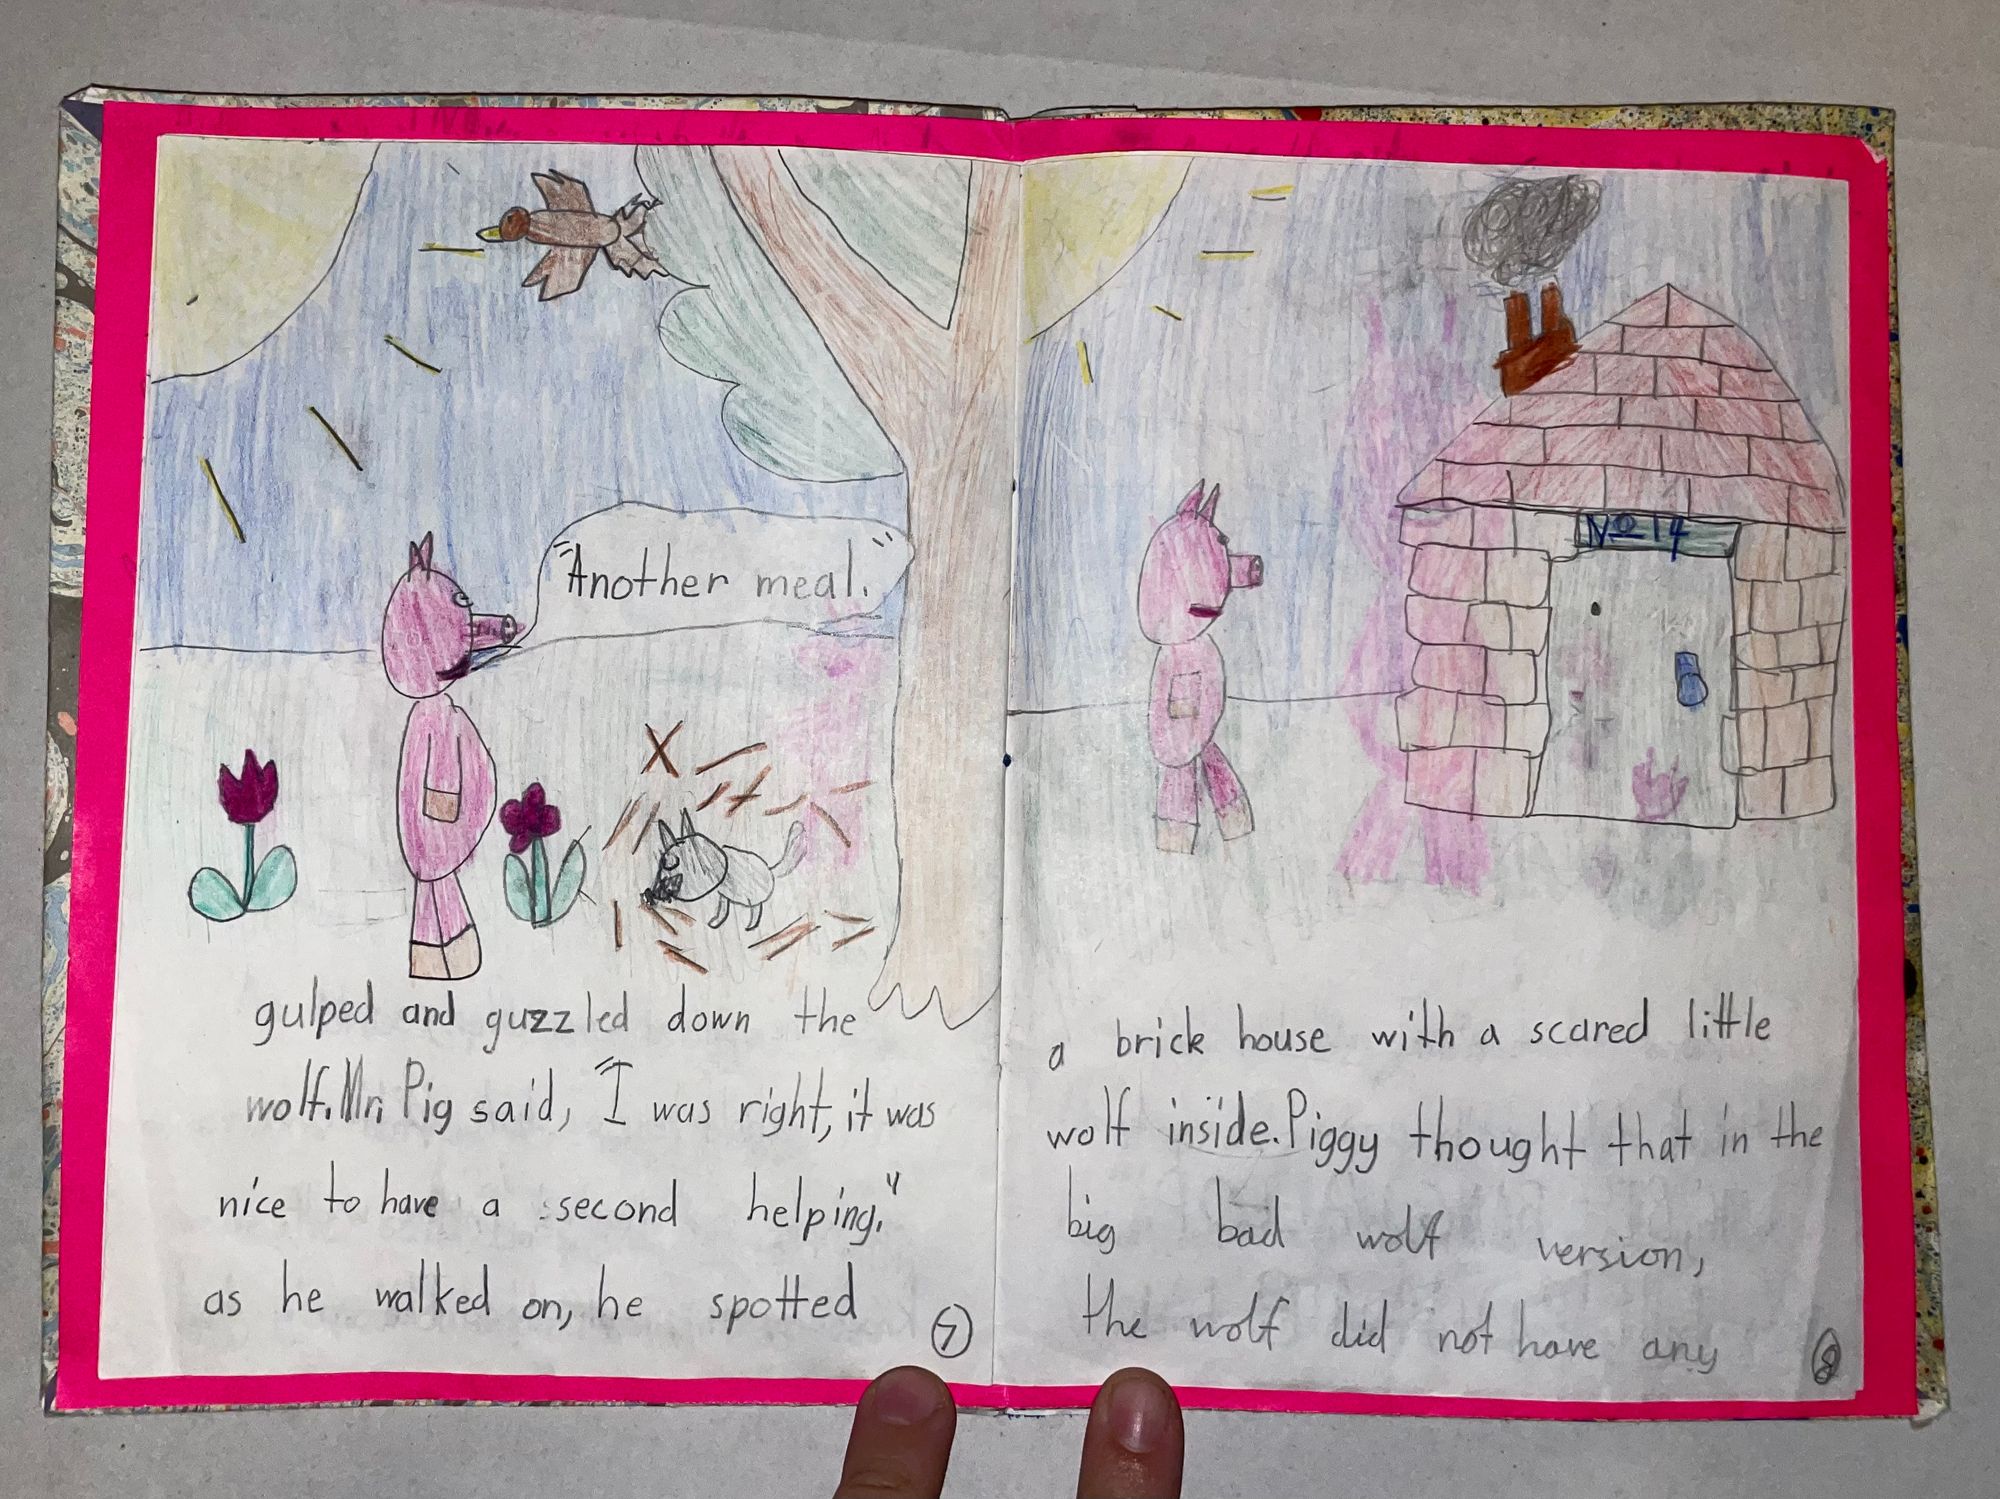 "Another meal."
gulped and guzzled down the
wolf. Mr. Pig said, "I was right, it was
nice to have a second helping."
as he walked on, he spotted
7
No 14
a brick house with a scared little
wolf inside. Piggy thought that in the
big bad wolf version,
the wolf did not have any
8